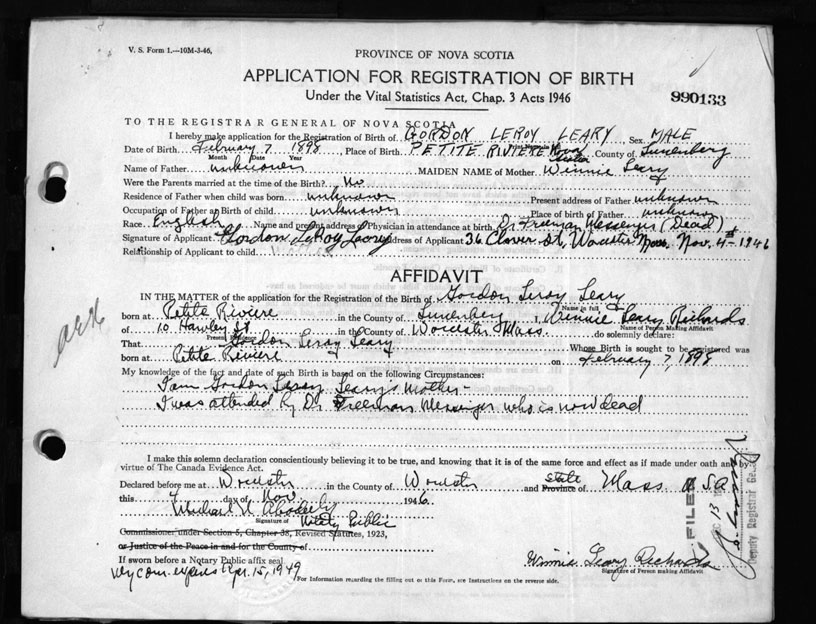 V. S. Form 1.—10M-3-46,
PROVINCE OF NOVA SCOTIA
APPLICATION FOR REGISTRATION OF BIRTH
Under the Vital Statistics Act, Chap. 3 Acts 1946
990133
TO THE REGISTRAR GENERAL OF NOVA SCOTIA
I hereby make application for the Registration of Birth of GORDON LEROY LEARY, Sex MALE
Date of Birth February 7 1898, Place of Birth PETITE RIVIERE Nova Scotia County of Lunenberg
Month Date Year
Name of Father unknown MAIDEN NAME of Mother Winnie Leary
Were the Parents married at the time of the Birth? No
Residence of Father when child was born unknown Present address of Father unknown
Occupation of Father at Birth of child unknown Place of birth of Father unknown
Race English Name and present address of Physician in attendance at birth Dr Freeman Messenger (Dead)
Signature of Applicant Gordon LeRoy Leary Address of Applicant 36 Clover St, Worcester, Mass. Nov. 4-1946
Relationship of Applicant to child
AFFIDAVIT
IN THE MATTER of the application for the Registration of the Birth of Gordon Leroy Leary
Name in full
born at Petite Riviere in the County of Lunenberg I, Winnie Leary Richards
Name of Person Making Affidavit
of 10 Hawley St in the County of Worcester Mass do solemnly declare:
Present Residence
That Gordon Leroy Leary Whose Birth is sought to be registered was
born at Petite Riviere on February 7, 1898
My knowledge of the fact and date of such Birth is based on the following Circumstances:
I am Gordon Leroy Leary's mother-
I was attended by Dr Freeman Messenger who is now dead
I make this solemn declaration conscientiously believing it to be true, and knowing that it is of the same force and effect as if made under oath and by
virtue of The Canada Evidence Act.
Declared before me at Worcester in the County of Worcester and Province of State Mass USA
this 4 day of Nov. 1946
Michael
Signature of Notary Public
Commissioner under Section 5, Chapter 38, Revised Statutes, 1923,
or Justice of the Peace in and for the County of
If sworn before a Notary Public affix seal
My com. expires Apr. 15, 1949
Winnie Leary Richards
Signature of Person making Affidavit
(For Information regarding the filling out of this Form, see Instructions on the reverse side.
FILED
DEC 13
Deputy Registrar Ge